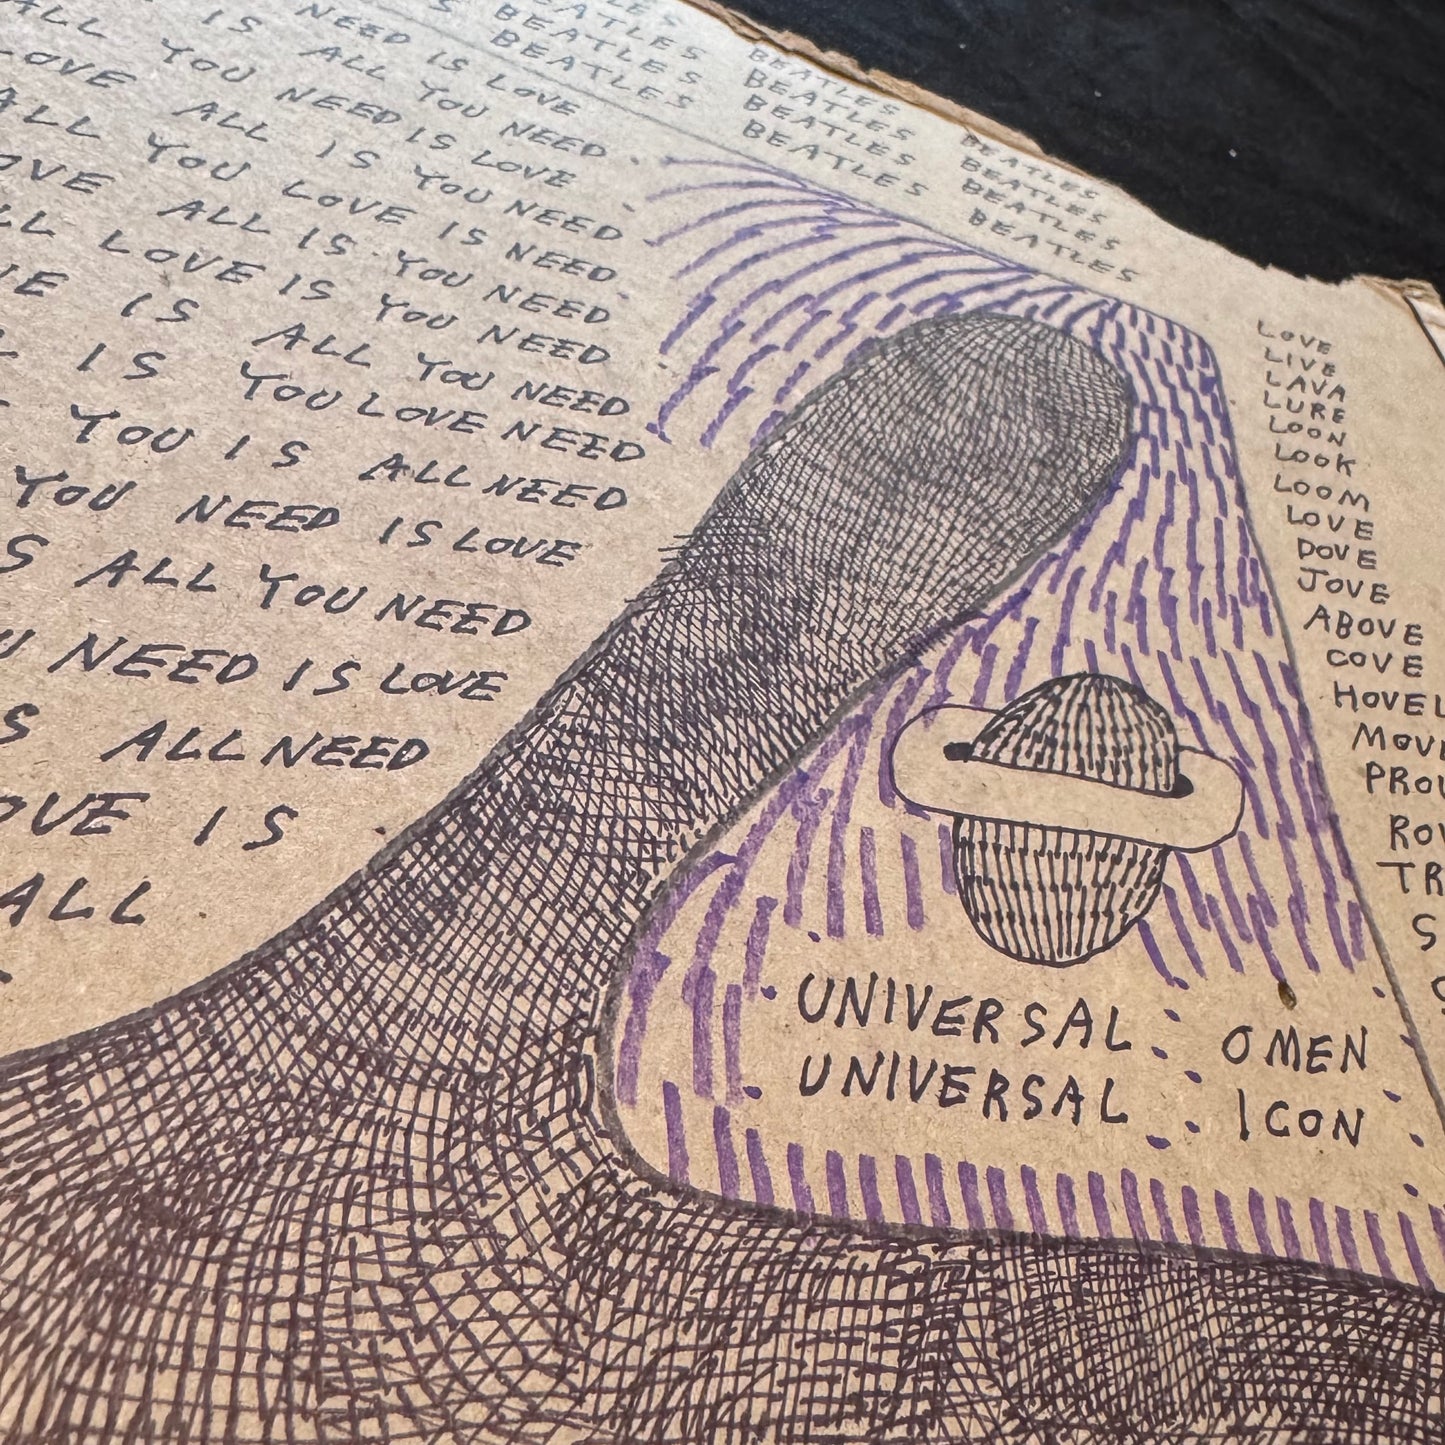 BEATLES BEATLES
BEATLES BEATLES BEATLES
BEATLES BEATLES BEATLES
BEATLES BEATLES BEATLES
BEATLES BEATLES
NEED IS LOVE
ALL IS ALL YOU NEED
YOU NEED IS LOVE
LOVE ALL IS YOU NEED
ALL YOU LOVE IS NEED
LOVE ALL IS YOU NEED
ALL LOVE IS YOU NEED
IS ALL YOU NEED
IS YOU LOVE NEED
YOU IS ALL NEED
YOU NEED IS LOVE
ALL YOU NEED
NEED IS LOVE
ALL NEED
LOVE IS
ALL
UNIVERSAL : OMEN
UNIVERSAL : ICON
LOVE
LIVE
LAVA
LURE
LOON
LOOK
LOOM
LOVE
DOVE
JOVE
ABOVE
COVE
HOVEL